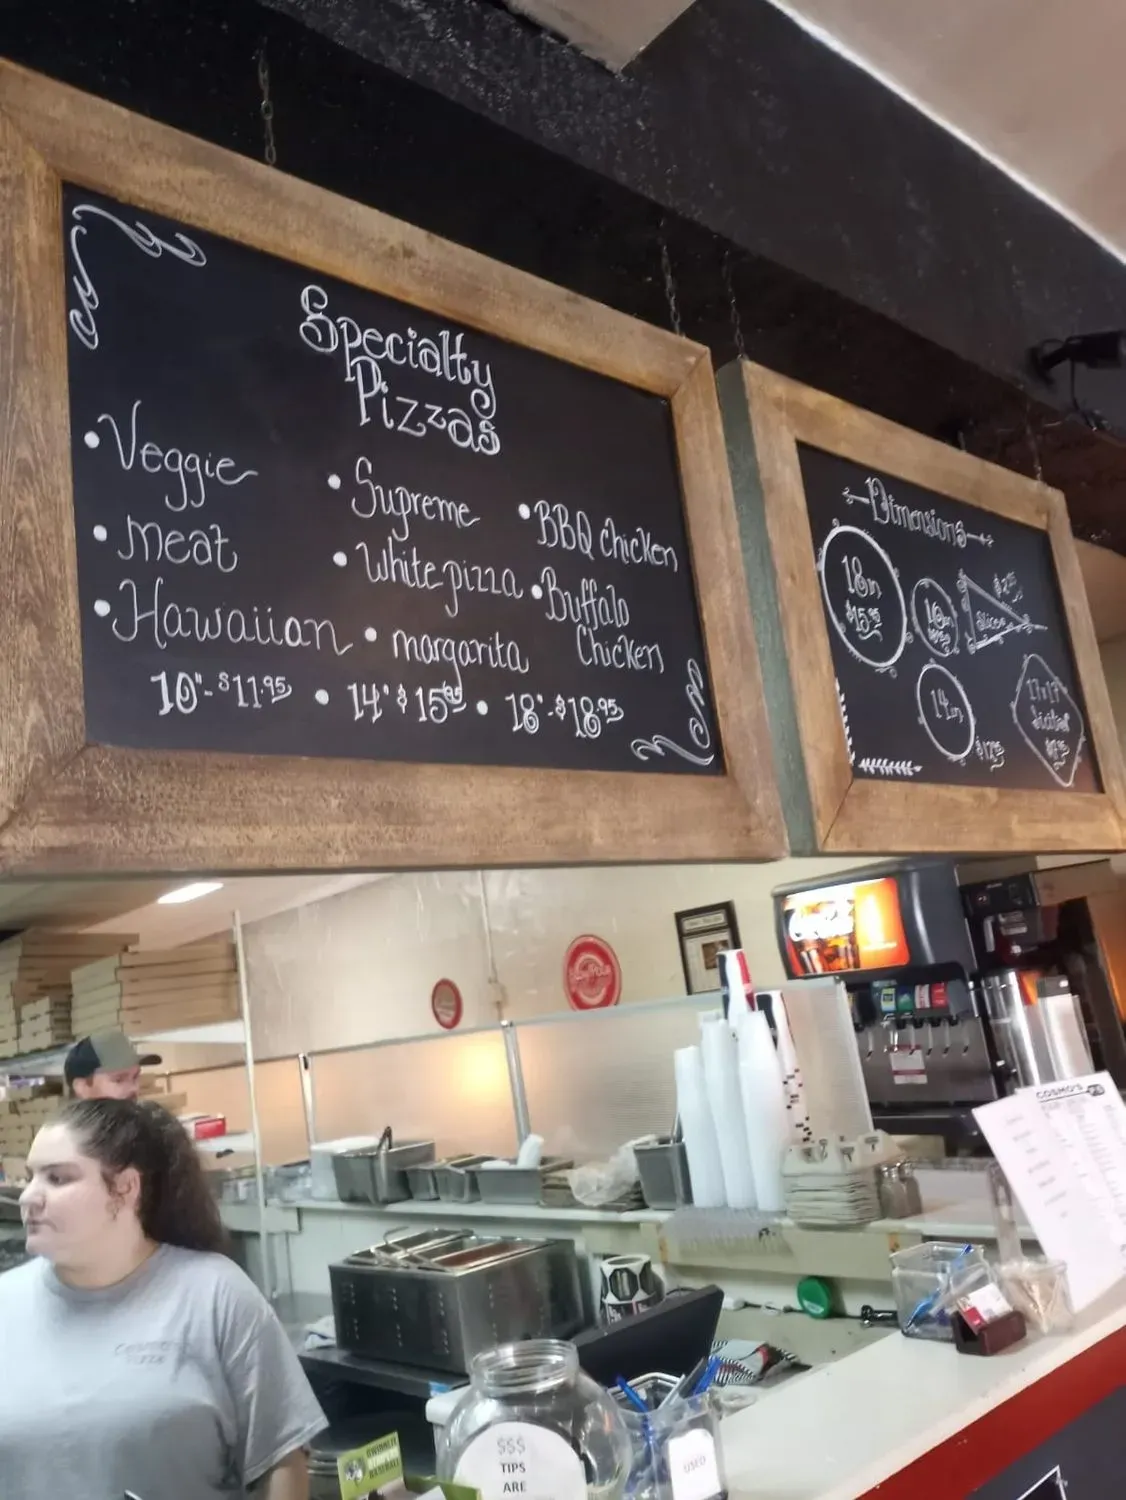 Specialty
Pizzas
• Veggie
• meat
• Hawaiian
• Supreme
• White pizza
• margarita
• BBQ chicken
• Buffalo
Chicken
10"-$11.95 • 14"$15.95 • 18"-$18.95
Dimensions
18in
$15.95
10in
Slices
14in
$12.95
17x17
Sicilian
COSMO'S
Cosmo's
Pizza
$$$
TIPS
ARE
USED